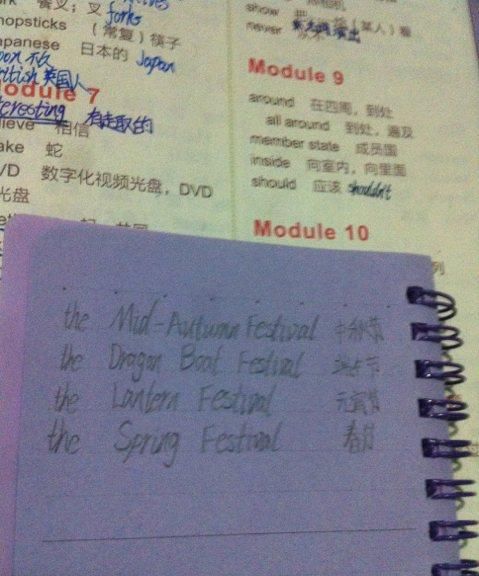 餐叉；叉 forks
hopsticks （常复）筷子
apanese 日本的 Japan
British 英国人
odule 7
teresting 有趣的
lieve 相信
ake 蛇
VD 数字化视频光盘，DVD
光盘
show
（某人）看
never
Module 9
around 在四周，到处
all around 到处，遍及
member state 成员国
inside 向室内，向里面
should 应该 shouldn't
Module 10
列
the Mid-Autumn Festival 中秋节
the Dragon Boat Festival 端午节
the Lantern Festival 元宵节
the Spring Festival 春节